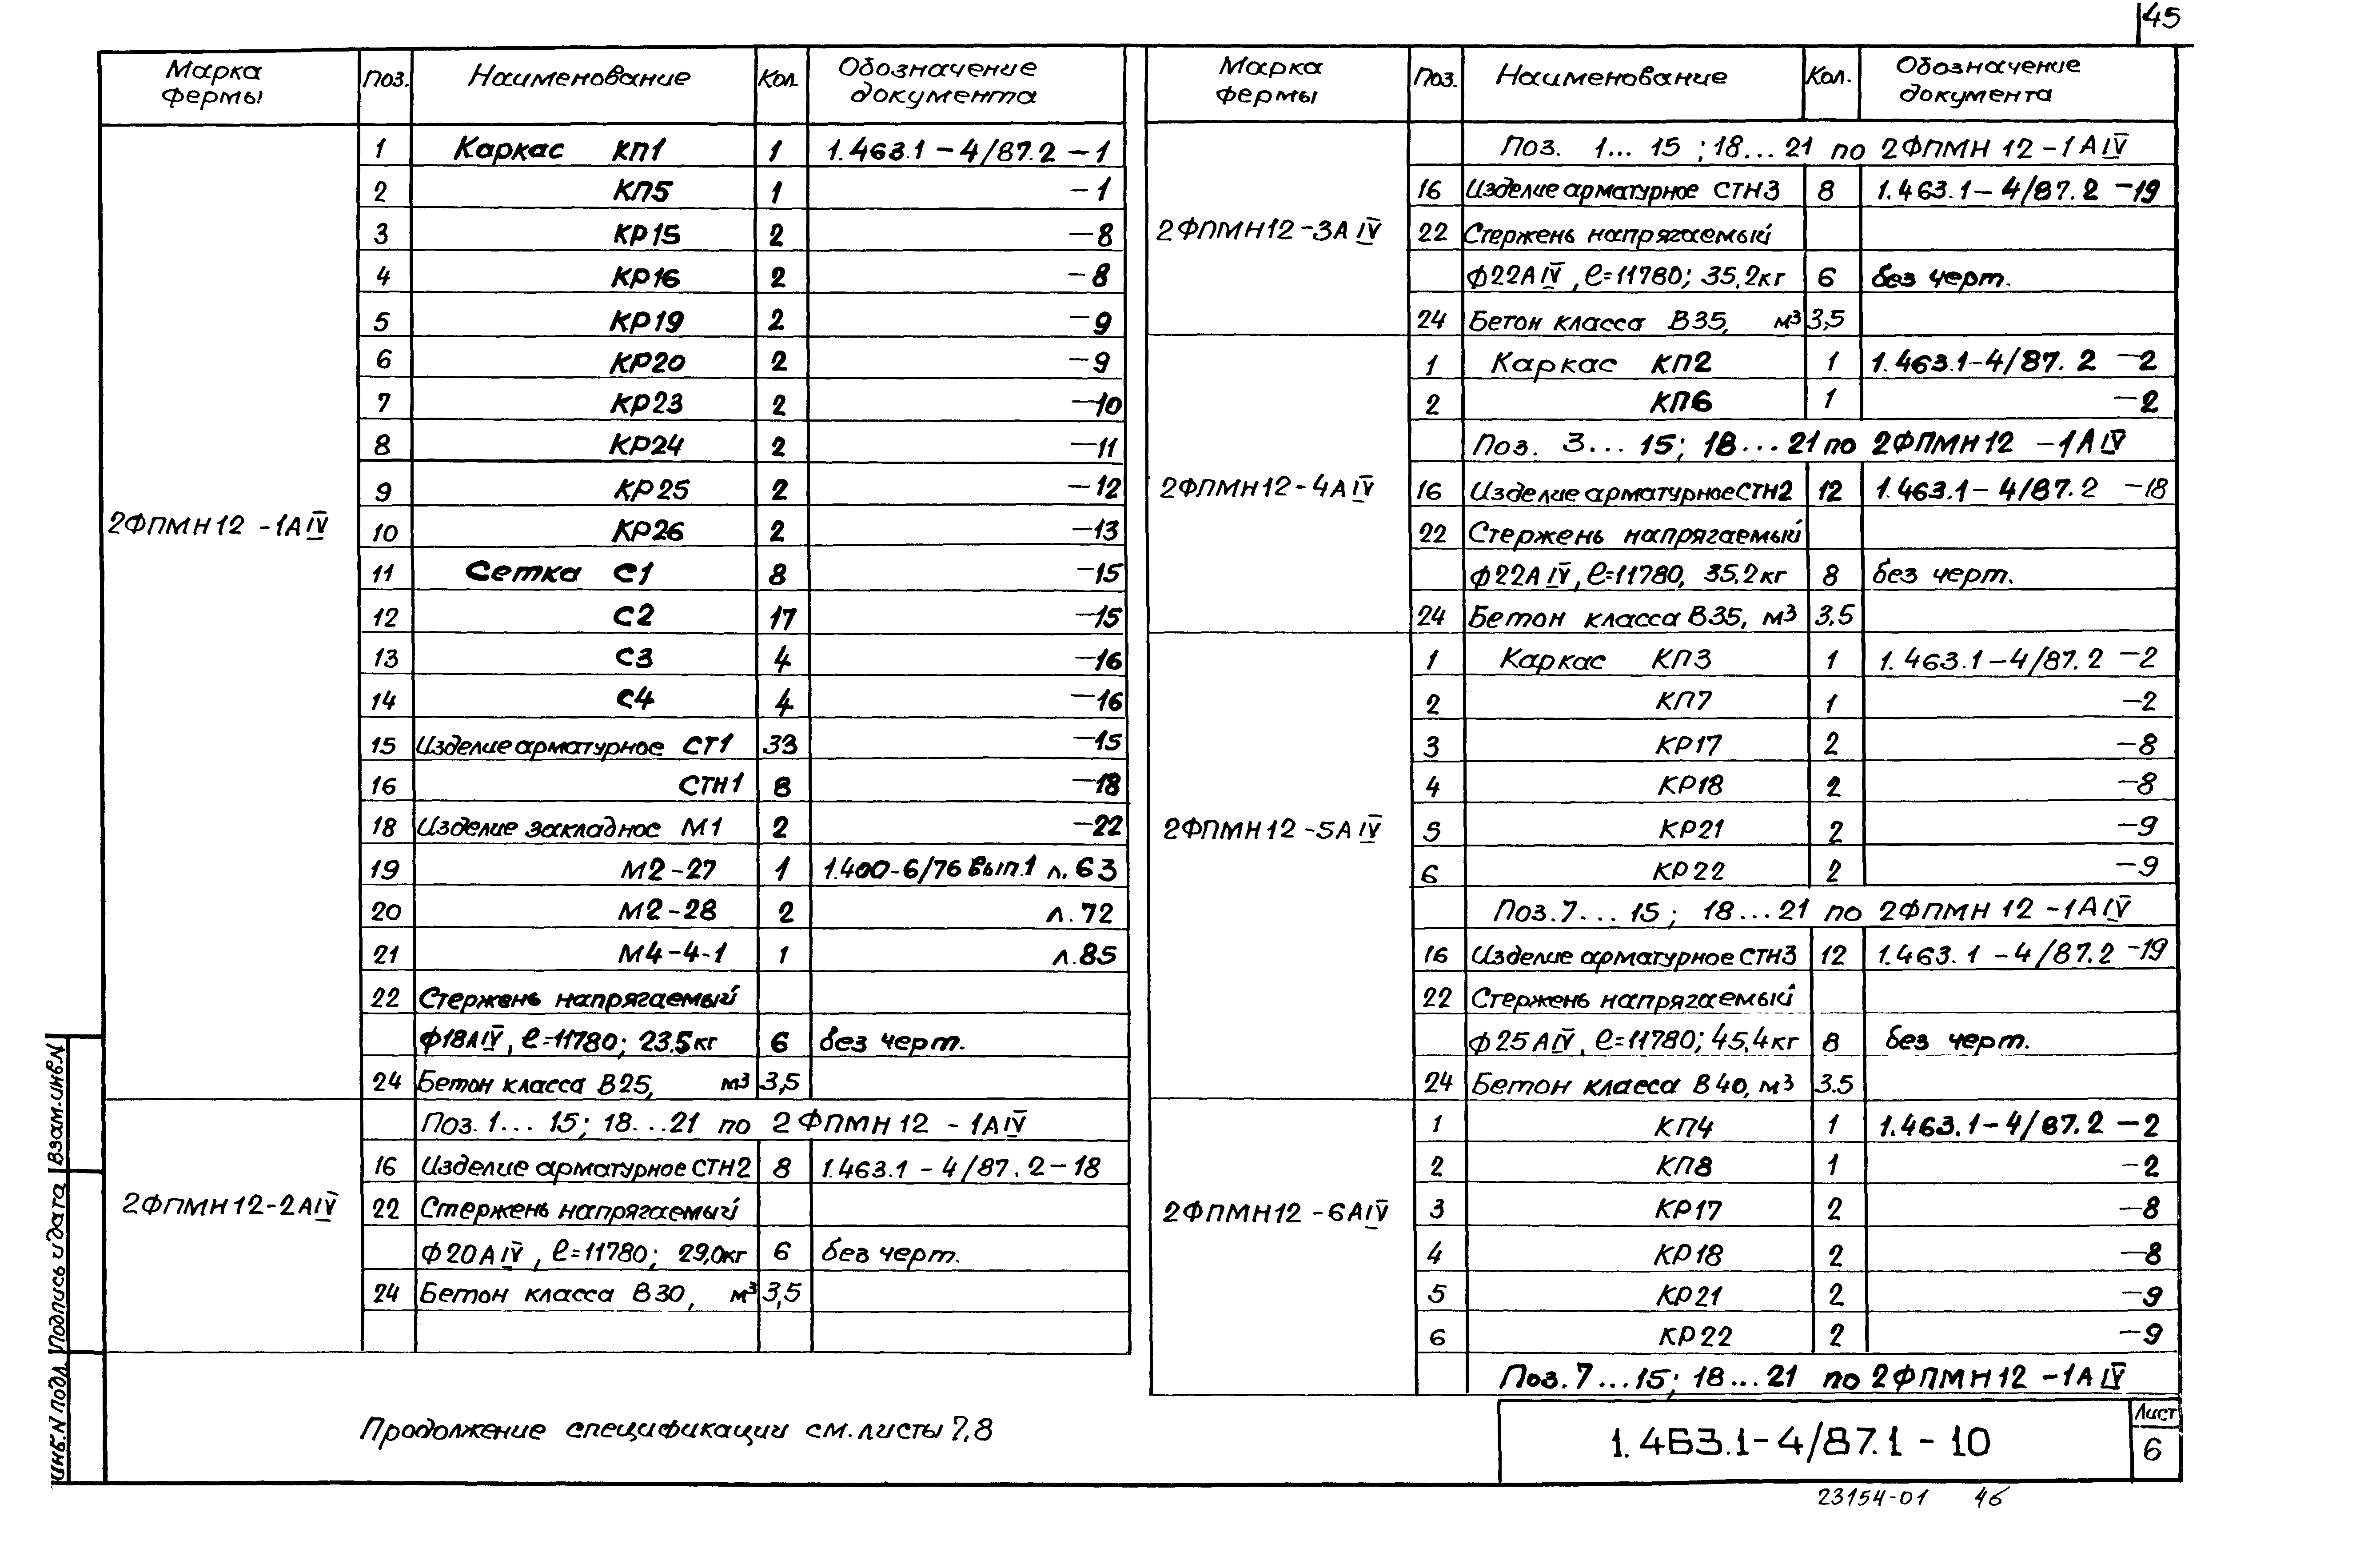 45
Марка фермы Поз. Наименование Кол. Обозначение документа
2ФПМН12-1АIV
1 Каркас КП1 1 1.463.1-4/87.2-1
2 КП5 1 -1
3 КР15 2 -8
4 КР16 2 -8
5 КР19 2 -9
6 КР20 2 -9
7 КР23 2 -10
8 КР24 2 -11
9 КР25 2 -12
10 КР26 2 -13
11 Сетка С1 8 -15
12 С2 17 -15
13 С3 4 -16
14 С4 4 -16
15 Изделие арматурное СТ1 33 -15
16 СТН1 8 -18
18 Изделие закладное М1 2 -22
19 М2-27 1 1.400-6/76 вып.1 л.63
20 М2-28 2 л.72
21 М4-4-1 1 л.85
22 Стержень напрягаемый
ф18АIV, ℓ=11780; 23.5кг 6 без черт.
24 Бетон класса В25, м³ 3,5
2ФПМН12-2АIV
Поз. 1... 15; 18...21 по 2ФПМН12-1АIV
16 Изделие арматурное СТН2 8 1.463.1-4/87.2-18
22 Стержень напрягаемый
ф20АIV, ℓ=11780; 29,0кг 6 без черт.
24 Бетон класса В30, м³ 3,5
Марка фермы Поз. Наименование Кол. Обозначение документа
2ФПМН12-3АIV
Поз. 1... 15; 18...21 по 2ФПМН12-1АIV
16 Изделие арматурное СТН3 8 1.463.1-4/87.2-19
22 Стержень напрягаемый
ф22АIV, ℓ=11780; 35,2кг 6 без черт.
24 Бетон класса В35, м³ 3,5
2ФПМН12-4АIV
1 Каркас КП2 1 1.463.1-4/87.2-2
2 КП6 1 -2
Поз. 3... 15; 18...21 по 2ФПМН12-1АIV
16 Изделие арматурное СТН2 12 1.463.1-4/87.2-18
22 Стержень напрягаемый
ф22АIV, ℓ=11780, 35,2кг 8 без черт.
24 Бетон класса В35, м³ 3.5
2ФПМН12-5АIV
1 Каркас КП3 1 1.463.1-4/87.2-2
2 КП7 1 -2
3 КР17 2 -8
4 КР18 2 -8
5 КР21 2 -9
6 КР22 2 -9
Поз. 7... 15; 18...21 по 2ФПМН12-1АIV
16 Изделие арматурное СТН3 12 1.463.1-4/87.2-19
22 Стержень напрягаемый
ф25АIV, ℓ=11780; 45,4кг 8 без черт.
24 Бетон класса В40, м³ 3.5
2ФПМН12-6АIV
1 КП4 1 1.463.1-4/87.2-2
2 КП8 1 -2
3 КР17 2 -8
4 КР18 2 -8
5 КР21 2 -9
6 КР22 2 -9
Поз. 7...15; 18...21 по 2ФПМН12-1АIV
Продолжение спецификации см. листы 7,8
1.463.1-4/87.1-10
Лист
6
23154-01 46
Взам.инв.N
Подпись и дата
Инв.N подл.